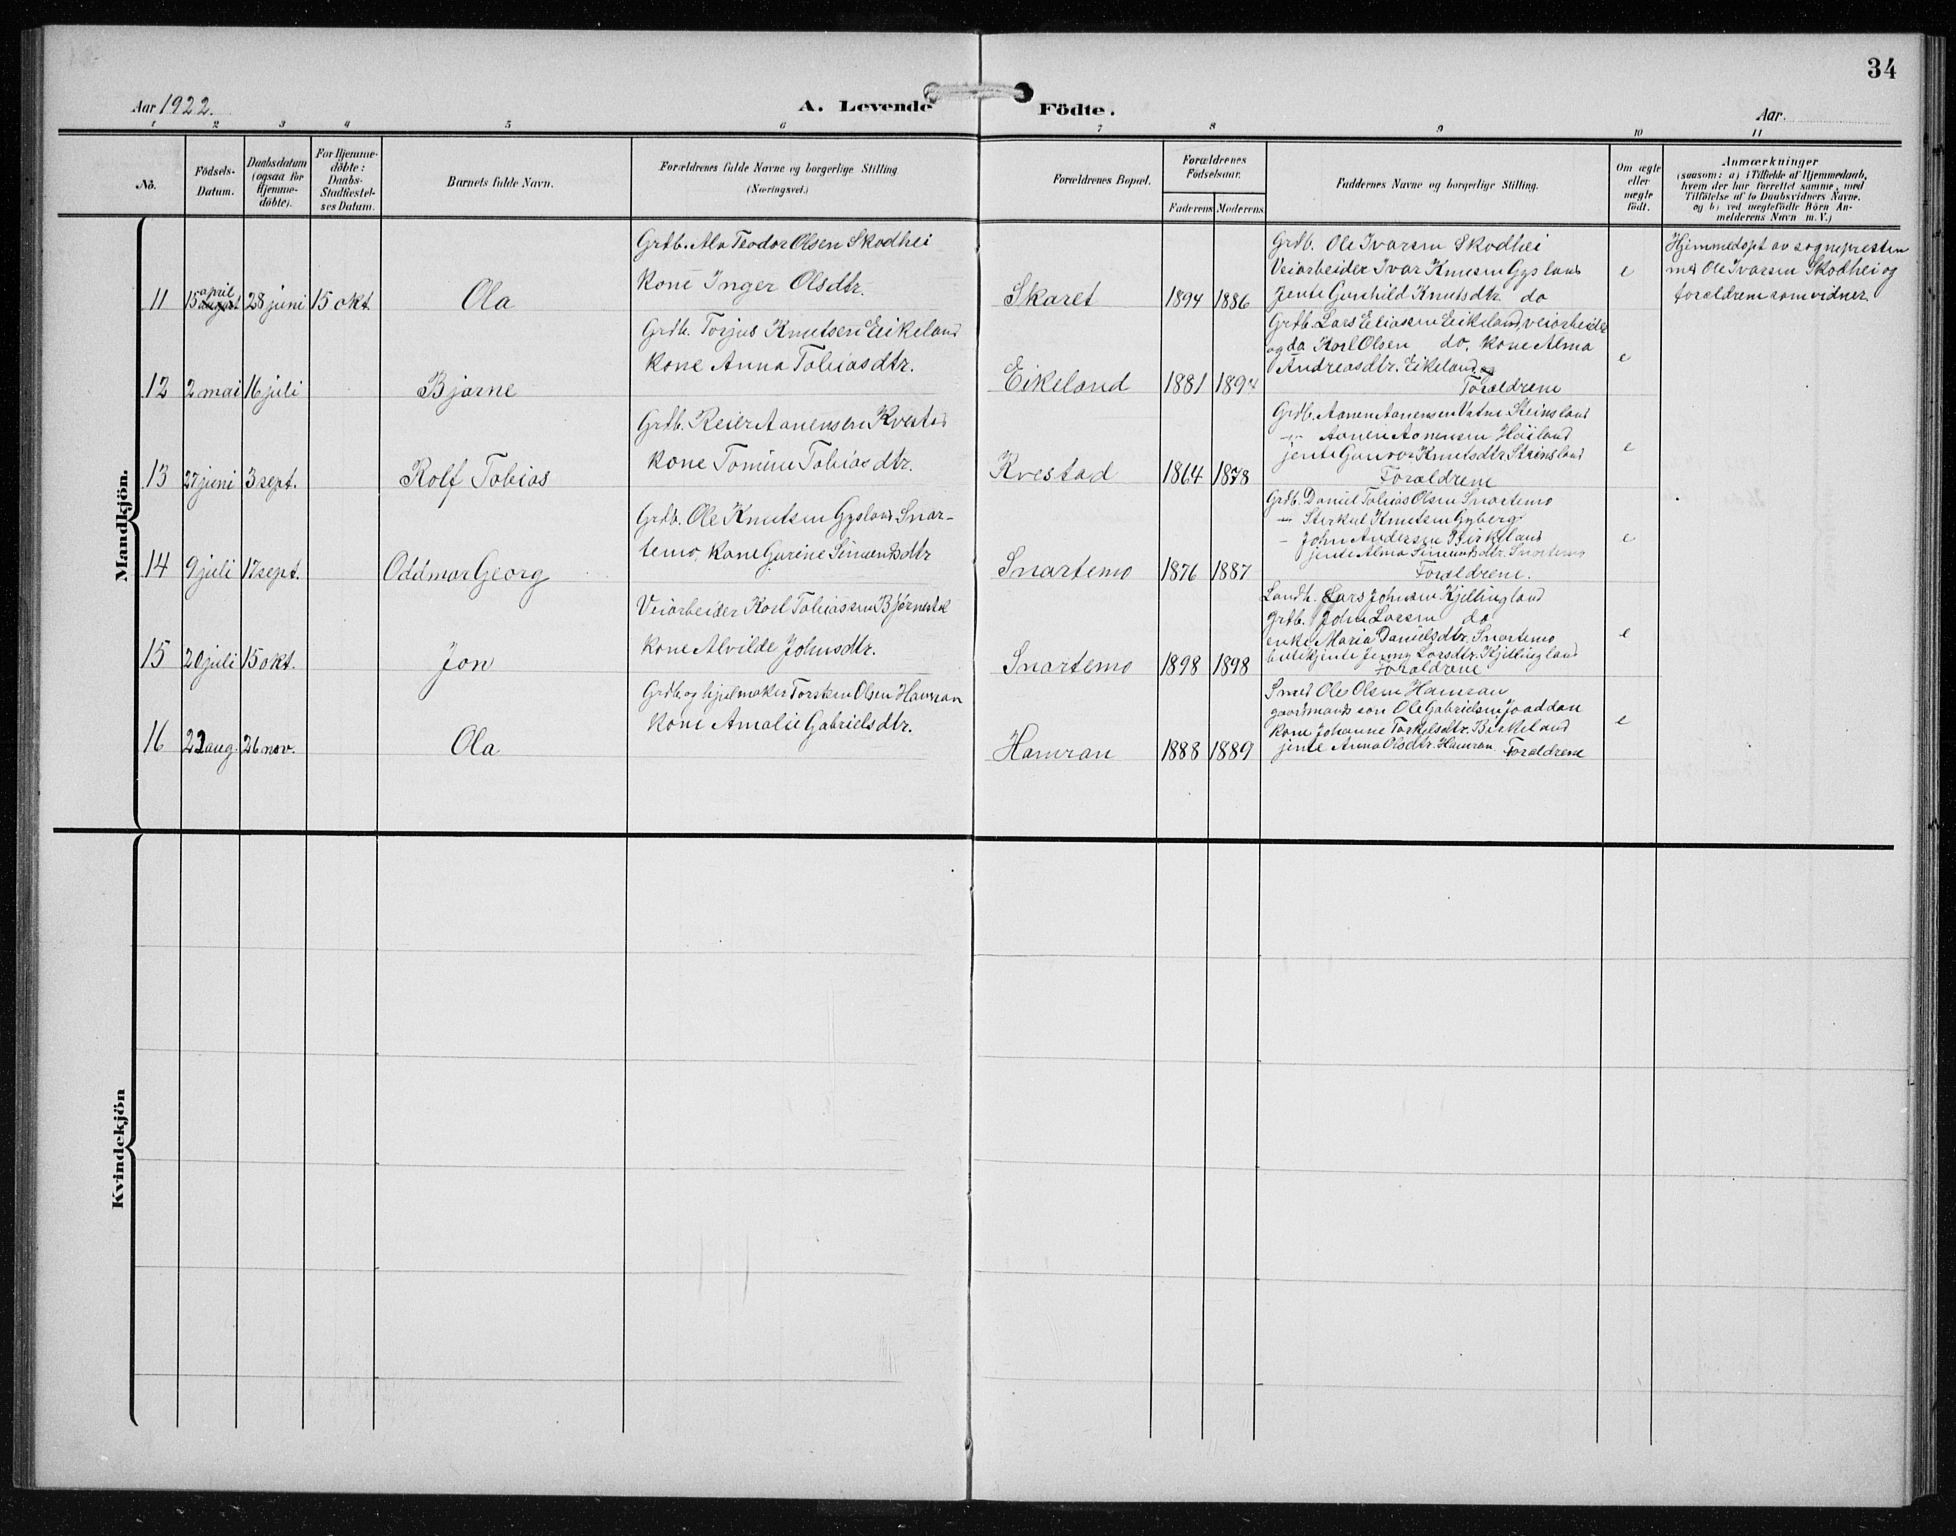 34
Aar 1922.
A. Levende Födte.
Aar.
1 2 3 4 5 6 7 8 9 10 11
No.
Födsels-
Datum.
Daabsdatum
(ogsaa for
Hjemme-
döbte).
For Hjemme-
döbte:
Daabs-
Stadfæstel-
ses Datum.
Barnets fulde Navn.
Forældrenes fulde Navne og borgerlige Stilling
(Næringsvei.)
Forældrenes Bopæl.
Forældrenes
Födselsaar.
Faderens Moderens
Faddernes Navne og borgerlige Stilling.
Om ægte
eller
uægte
födt.
Anmærkninger
(saasom: a) i Tilfælde af Hjemmedaab,
hvem der har forrettet samme, med
Tilföielse af to Daabsvidners Navne.
og b) ved uægtefödte Börn An-
melderens Navn m. V.)
Mandkjön.
11
15 april
august
28 juni
15 okt.
Ola
Grdb. Ola Teodor Olsen Skodhei
kone Inger Olsdtr.
Skaret
1894
1886
Grdb. Ole Ivarsen Skodhei
Veiarbeider Ivar Knusen Gysland
Jente Gunhild Knutsdtr. do
e
Hjemmedøpt av sognepresten
med Ole Ivarsen Skodhei og
foraldrene som vidner
12
2 mai
16 juli
Bjarne
Grdb. Torjus Knutsen Eikeland
kone Anna Tobiasdtr.
Eikeland
1881
1894
Grdb. Lars Eliassen Eikeland, veiarbeider
og do Karl Olsen do, kone Alma
Andreasdtr. Eikeland og
Foraldrene
e
13
27 juni
3 sept.
Rolf Tobias
Grdb. Reier Aanensen Kvestad
kone Tomine Tobiasdtr.
Kvestad
1864
1878
Grdb. Aanen Aanensen Vatne Steinsland
-"- Aanen Aanensen Höiland
jente Gunvor Knutsdtr. Steinsland
Foraldrene
e
14
9 juli
17 sept.
Oddmar Georg
Grdb. Ole Knutsen Gysland Snar-
temo, kone Gurine Simensdtr
Snartemo
1876
1887
Grdb. Daniel Tobias Olsen Snartemo
-"- Sterkul Knutsen Gyberg
- John Andersen Birkeland
jente Alma Simensdtr. Snartemo
Foraldrene.
e
15
20 juli
15 okt.
Jon
Veiarbeider Karl Tobiassen Bjørnestøl
kone Alvilde Johnsdtr.
Snartemo
1898
1898
Landh. Lars Johnsen Kjellingland
Grdb. John Larsen do
enke Maria Danielsdtr. Snartemo
butikjente Jenny Larsdtr. Kjellingland
Foraldrene
e
16
22 aug
26 nov.
Ola
Grdb og hjulmaker Torstein Olsen Hamran
kone Amalie Gabrielsdtr.
Hamran
1888
1889
Smed Ole Olsen Hamran
gaardmands søn Ole Gabrielsen Joaddan
kone Johanne Torkelsdtr. Birkeland
jente Anna Olsdtr. Hamran Foraldrene
e
Kvindekjön